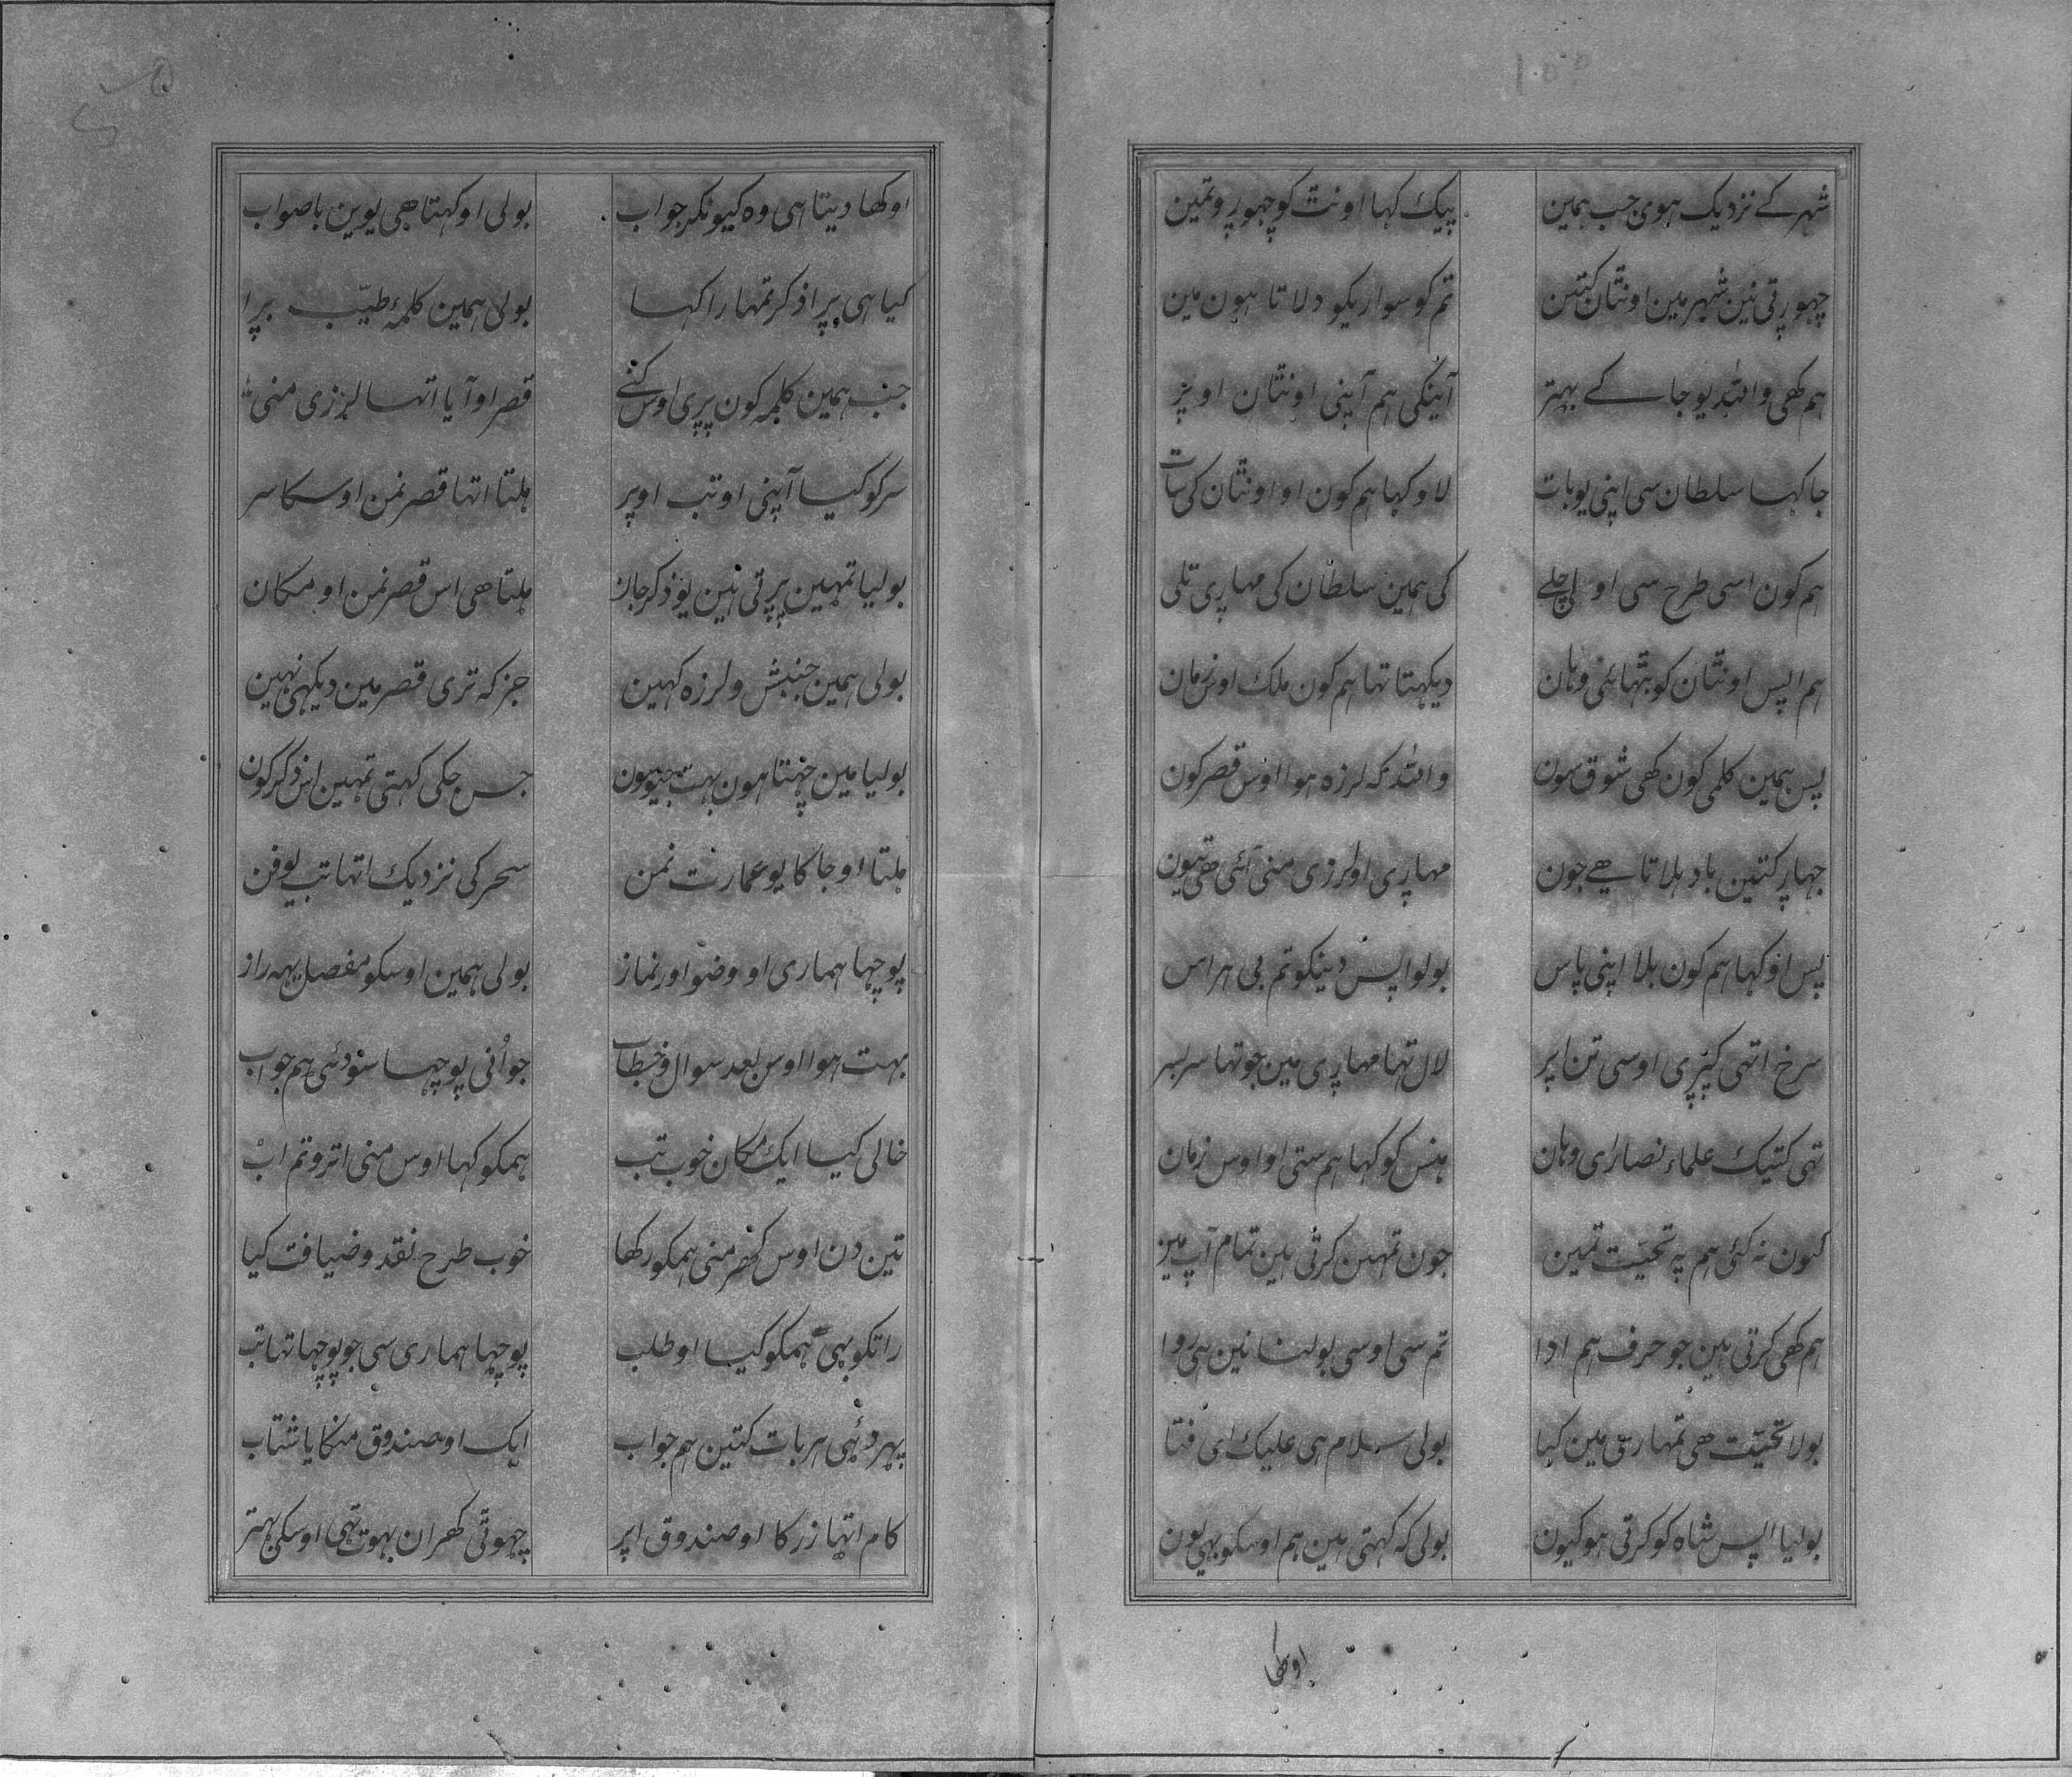 شہر کے نزدیک ہوی جب ہمین پیک کہا اونت کو چہورو تمین
چہورتی نین شہر مین اونتان کتین تم کو سواریکو دلاتا ہون مین
ہم کھی واللہ یو جا کے بہتر آینکی ہم آپنی اونتان اوپر
جا کہا سلطان سی اپنی یو بات لاو کہا ہم کون او اونتان کی سات
ہم کون اسی طرح سی او لی چلے کی ہمین سلطان کی مہاری تلی
ہم اپس اونتان کو بتھائی وہان دیکہتا تہا ہم کون ملک اوس زمان
پس ہمین کلمی کون کھی شوق سون واللہ کہ لرزہ ہوا اوس قصر کون
جہار کتین باد ہلاتا ھے جون مہاری او لرزی منی آئی تھی یون
پس او کہا ہم کون بلا اپنی پاس بولو اپس دینکو تم بی ہراس
سرخ اتھی کپری اوسی تن اپر لال تہا مہاری مین جو تہا سر بسر
تہی کتیک علماء نصاری وہان ہنس کو کہا ہم ستی او اوس زمان
کون نہ کئی ہم پہ تحیت تمین جون تمہن کرتی ہین تمام آپ میز
ہم کھی کرتی ہین جو حرف ہم ادا تم سی اوسی بولنا نین ہی روا
بولا تحیت ھی تمہاری مین کیا بولی سلام ہی علیک ای فتا
بولیا اپس شاہ کو کرتی ہو کیون بولی کہ کہتی ہین ہم اوسکو بہی یون
اوکھا
اوکھا دیتا ہی وہ کیونکر جواب بولی او کہتا ھی یوین باصواب
کیا ہی پرا ذکر تمہارا کہا بولی ہمین کلمۂ طیّب برا
جب ہمین کلمہ کون پری اوس کنے قصر او آیا اتہا لرزی منی
سر کو کیا آپنی او تب اوپر ہلتا اتہا قصر نمن اوسکا سر
بولیا تمہین پرتی نین یو ذکر جان ہلتا ھی اس قصر نمن او مکان
بولی ہمین جنبش و لرزہ کہین جز کہ تری قصر مین دیکہی نہین
بولیا مین چہتا ہون بہت جیو سون جس جکی کہتی تمہین اس ذکر کون
ہلتا او جاکا یو عمارت نمن سحر کی نزدیک اتہا تب یو فن
پوچہا ہماری او وضو اور نماز بولی ہمین اوسکو مفصل یہہ راز
بہت ہوا اوس بعد سوال و خطاب جو اُنی پوچہا سو دئی ہم جواب
خالی کیا ایک مکان خوب تب ہمکو کہا اوس منی اترو تم اب
تین دن اوس کھر منی ہمکو رکھا خوب طرح نقد و ضیافت کیا
راتکو بہی ہمکو کیا او طلب پوچہا ہماری سی جو پوچہا تہا تب
پہر دئی ہر بات کتین ہم جواب ایک او صندوق منکایا شتاب
کام اتہا زر کا او صندوق اپر چہوتی کھران بہوت تہی اوسکی بہتر